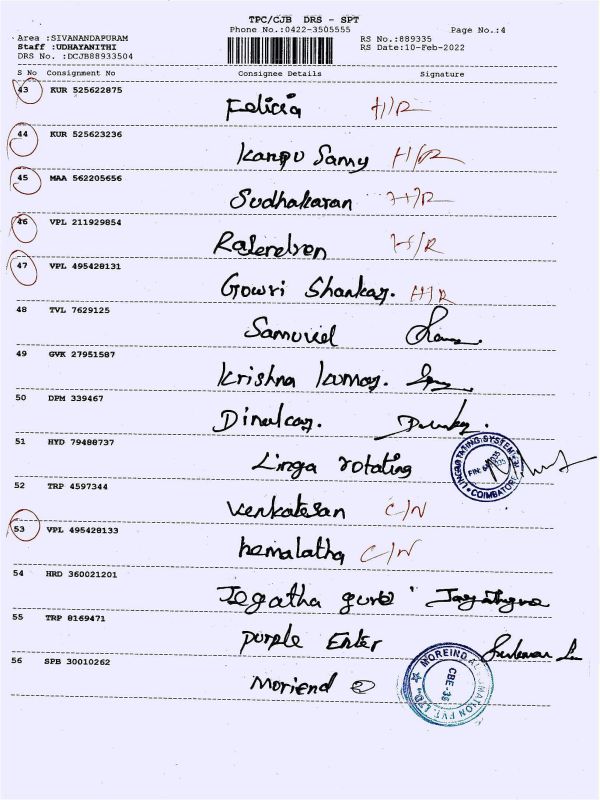 TPC/CJB DRS - SPT
Phone No.:0422-3505555
Page No.:4
Area :SIVANANDAPURAM
Staff :UDHAYANITHI
DRS No. :DCJB88933504
RS No.:889335
RS Date:10-Feb-2022
S No Consignment No Consignee Details Signature
43 KUR 525622875 Felicia H/R
44 KUR 525623236 Kanpu Samy H/R
45 MAA 562205656 Sudhakaran H/R
46 VPL 211929854 H/R
47 VPL 495428131 Gowri Shankar. H/R
48 TVL 7629125 Samuviel
49 GVK 27951587 Krishna kumar.
50 DPM 339467
51 HYD 79488737 Linga rotating
LINGA ROTATING SYSTEM COIMBATORE
52 TRP 4597344 Venkatesan C/N
53 VPL 495428133 hemalatha C/N
54 HRD 360021201 Jegatha guru
55 TRP 8169471 purple Enter
56 SPB 30010262 Moriend
CBE-35